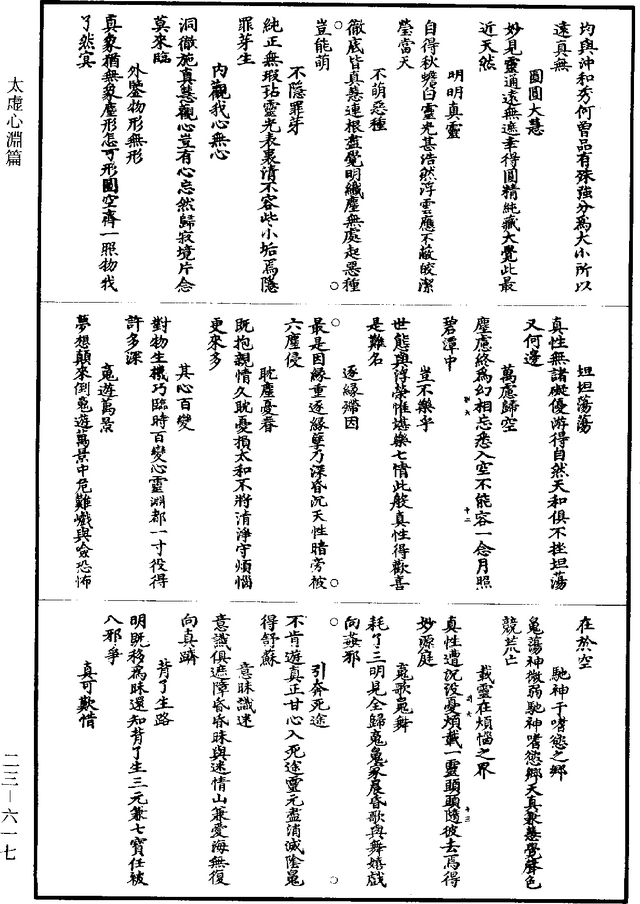 太虛心淵篇
均與沖和秀何曾品有殊強分為大小所以
遠真無
圓圓大慧
妙見靈通遠無遮幸得圓精純藏大覺此最
近天然
明明真靈
自得秋蟾白靈光甚浩然浮雲應不蔽皎潔
瑩當天
不萌惡種
徹底皆真慧連根盡覺明纖塵無處起惡種
豈能萌
不隱罪芽
純正無瑕玷靈光表裏清不容些小垢焉隱
罪芽生
內觀我心無心
洞徹施真慧觀心豈有心忘然歸寂境片念
莫來臨
外鑒物形無形
真象猶無象塵形怎可形圓空齊一照物我
了然冥
坦坦蕩蕩
真性無諸礙優游得自然天和俱不挫坦蕩
又何邊
萬慮歸空
塵慮終為幻相忘悉入空不能容一念月照
碧潭中
豈不樂乎
世態與浮榮惟堪樂七情此般真性得歡喜
是難名
逐緣滯因
最是因緣重逐緣孽乃深昏沉天性暗旁被
六塵侵
耽塵憂眷
既抱親情久耽憂損太和不將清淨守煩惱
更來多
其心百變
對物生機巧臨時百變心靈淵都一寸役得
許多深
䰟遊萬景
夢想顛來倒䰟遊萬景中危難戲與險恐怖
在於空
馳神于嗜慾之鄉
䰟蕩神微弱馳神嗜慾鄉天真兼慧覺聲色
競荒亡
載靈在煩惱之界
真性遭沉沒憂煩載一靈頭頭隨彼去焉得
妙源庭
䰟歌鬼舞
耗了三明見全歸鬼䰟家晨昏歌與舞嬉戲
向姦邪
引奔死途
不肯遊真正甘心入死途靈元盡消滅陰鬼
得舒蘇
意昧識迷
意識俱遮障昏昏昧與迷情山兼愛海無復
向真躋
背了生路
明既移為昧還知背了生三元兼七寶任被
八邪爭
真可歎惜
二三—六一七